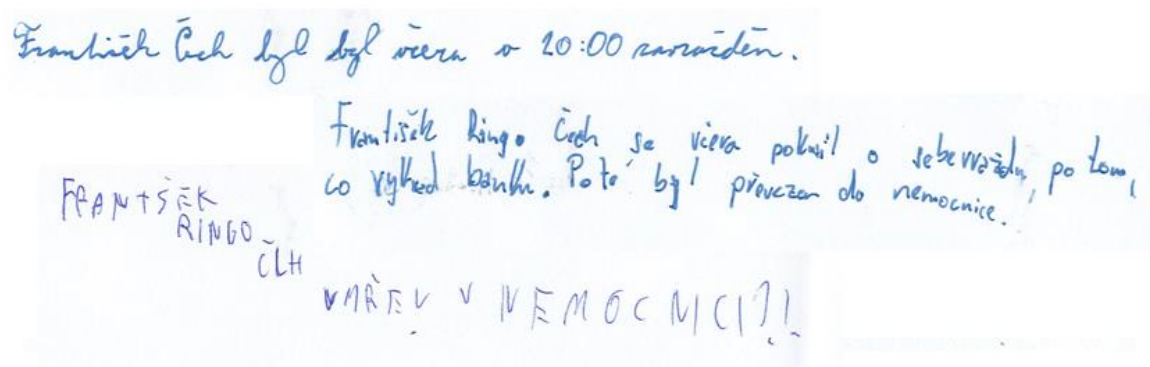 František Čech byl byl včera v 20:00 zavražděn.
František Ringo Čech se včera pokusil o sebevraždu, po tom,
co vykrad banku. Poté byl převezen do nemocnice.
FRANTŠEK
RINGO
ČLH
UMŘEV V NEMOCNICI?!